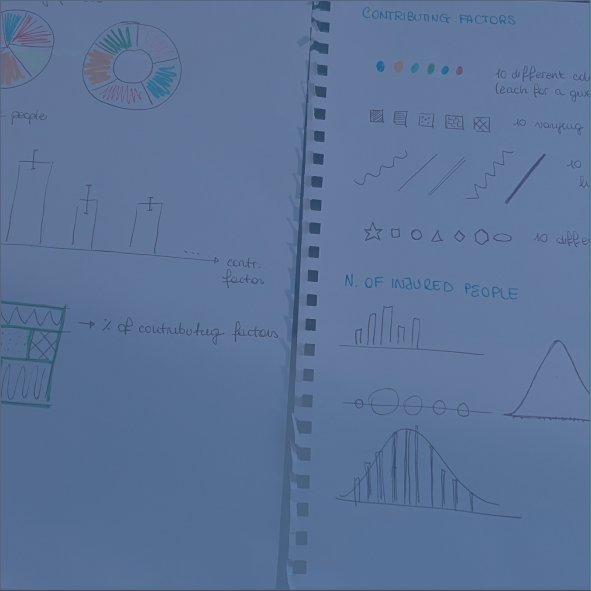 people
contr.
factor
→ % of contributing factors
CONTRIBUTING FACTORS
10 different
(each for a
10 varying
10
10 diffe
N. OF INJURED PEOPLE